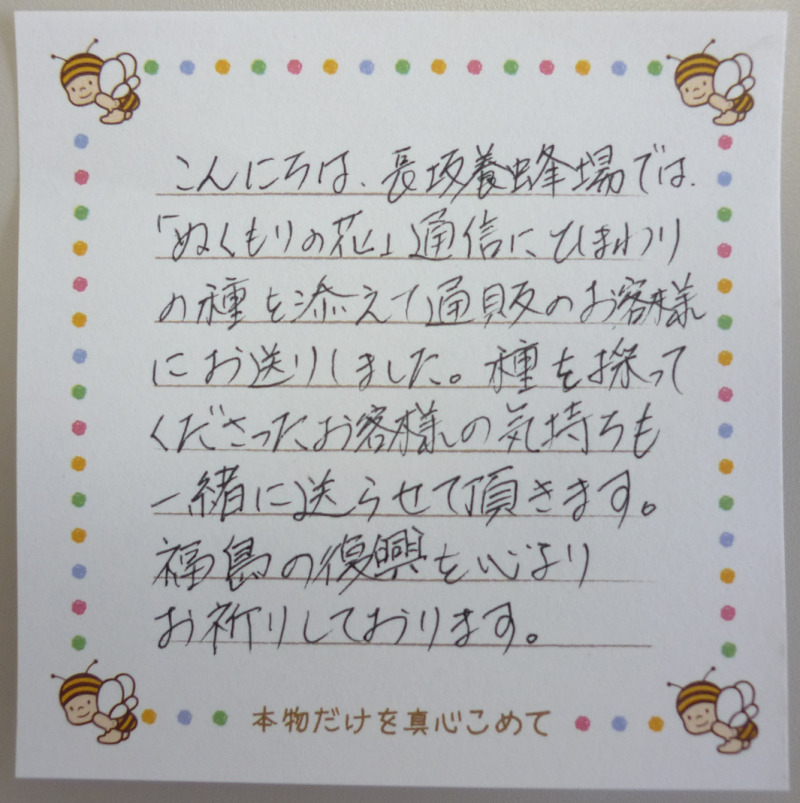 こんにちは、長坂養蜂場では、
「ぬくもりの花」通信にひまわり
の種を添えて通販のお客様
にお送りしました。種を採って
くださったお客様の気持ちも
一緒に送らせて頂きます。
福島の復興を心より
お祈りしております。
本物だけを真心こめて